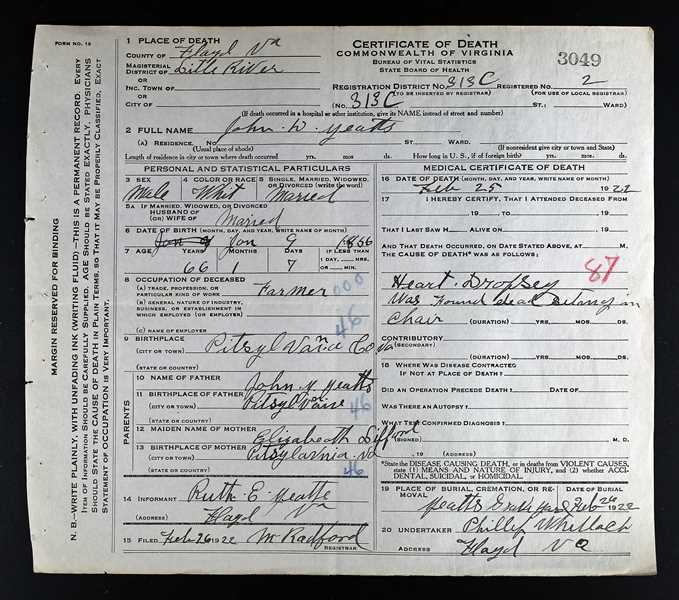 FORM NO. 12
MARGIN RESERVED FOR BINDING
N. B.—WRITE PLAINLY, WITH UNFADING INK (WRITING FLUID)—THIS IS A PERMANENT RECORD. EVERY
ITEM OF INFORMATION SHOULD BE CAREFULLY SUPPLIED. AGE SHOULD BE STATED EXACTLY. PHYSICIANS
SHOULD STATE THE CAUSE OF DEATH IN PLAIN TERMS, SO THAT IT MAY BE PROPERLY CLASSIFIED. EXACT
STATEMENT OF OCCUPATION IS VERY IMPORTANT.
1 PLACE OF DEATH
COUNTY OF Floyd Va
MAGISTERIAL DISTRICT OF Little River
OR
INC. TOWN OF
OR
CITY OF
CERTIFICATE OF DEATH
COMMONWEALTH OF VIRGINIA
BUREAU OF VITAL STATISTICS
STATE BOARD OF HEALTH
3049
REGISTRATION DISTRICT NO. 313C REGISTERED NO. 2
(TO BE INSERTED BY REGISTRAR) (FOR USE OF LOCAL REGISTRAR)
(No. 313C ST.; WARD)
(If death occurred in a hospital or other institution, give its NAME instead of street and number)
2 FULL NAME John W. Yeatts
(A) RESIDENCE. No. ST. WARD
(Usual place of abode) (If nonresident give city or town and State)
Length of residence in city or town where death occurred yrs. mos. ds. How long in U. S., if of foreign birth? yrs. mos. ds.
PERSONAL AND STATISTICAL PARTICULARS
3 SEX 4 COLOR OR RACE 5 SINGLE, MARRIED, WIDOWED, OR DIVORCED (write the word)
Male Whit Married
5A IF MARRIED, WIDOWED, OR DIVORCED
HUSBAND OF
(OR) WIFE OF Married
6 DATE OF BIRTH (MONTH, DAY, AND YEAR, WRITE NAME OF MONTH)
Jan 9 1856
7 AGE YEARS MONTHS DAYS IF LESS THAN 1 DAY, HRS. OR MIN.
66 1 7
8 OCCUPATION OF DECEASED
(A) TRADE, PROFESSION, OR PARTICULAR KIND OF WORK Farmer 000
(B) GENERAL NATURE OF INDUSTRY, BUSINESS, OR ESTABLISHMENT IN WHICH EMPLOYED (OR EMPLOYER)
(C) NAME OF EMPLOYER
46
9 BIRTHPLACE Pitsylvania Co Va
(CITY OR TOWN)
(STATE OR COUNTRY)
PARENTS
10 NAME OF FATHER John Y Yeatts
11 BIRTHPLACE OF FATHER
(CITY OR TOWN) 46
(STATE OR COUNTRY)
12 MAIDEN NAME OF MOTHER Elizabeath Difford
13 BIRTHPLACE OF MOTHER
(CITY OR TOWN)
(STATE OR COUNTRY) 46
14 INFORMANT Ruth E Yeatts
(ADDRESS) Floyd Va
15 FILED Feb 26 1922 M Radford
REGISTRAR
MEDICAL CERTIFICATE OF DEATH
16 DATE OF DEATH (MONTH, DAY, AND YEAR, WRITE NAME OF MONTH)
Feb 25 1922
17 I HEREBY CERTIFY, THAT I ATTENDED DECEASED FROM
, 19 , TO , 19
THAT I LAST SAW H ALIVE ON , 19
AND THAT DEATH OCCURRED, ON DATE STATED ABOVE, AT M.
THE CAUSE OF DEATH* WAS AS FOLLOWS:
87
Heart Dropsey
Was found dead siting in
Chair
(DURATION) YRS. MOS. DS.
CONTRIBUTORY
(SECONDARY)
(DURATION) YRS. MOS. DS.
18 WHERE WAS DISEASE CONTRACTED
IF NOT AT PLACE OF DEATH?
DID AN OPERATION PRECEDE DEATH? DATE OF
WAS THERE AN AUTOPSY?
WHAT TEST CONFIRMED DIAGNOSIS?
(SIGNED) M. D.
, 19 (ADDRESS)
*State the DISEASE CAUSING DEATH, or in deaths from VIOLENT CAUSES,
state (1) MEANS AND NATURE OF INJURY, and (2) whether ACCIDENTAL, SUICIDAL, or HOMICIDAL.
19 PLACE OF BURIAL, CREMATION, OR REMOVAL DATE OF BURIAL
Yeatts Grave Yard Feb 26 1922
20 UNDERTAKER Phillip Whitlock
ADDRESS Floyd Va